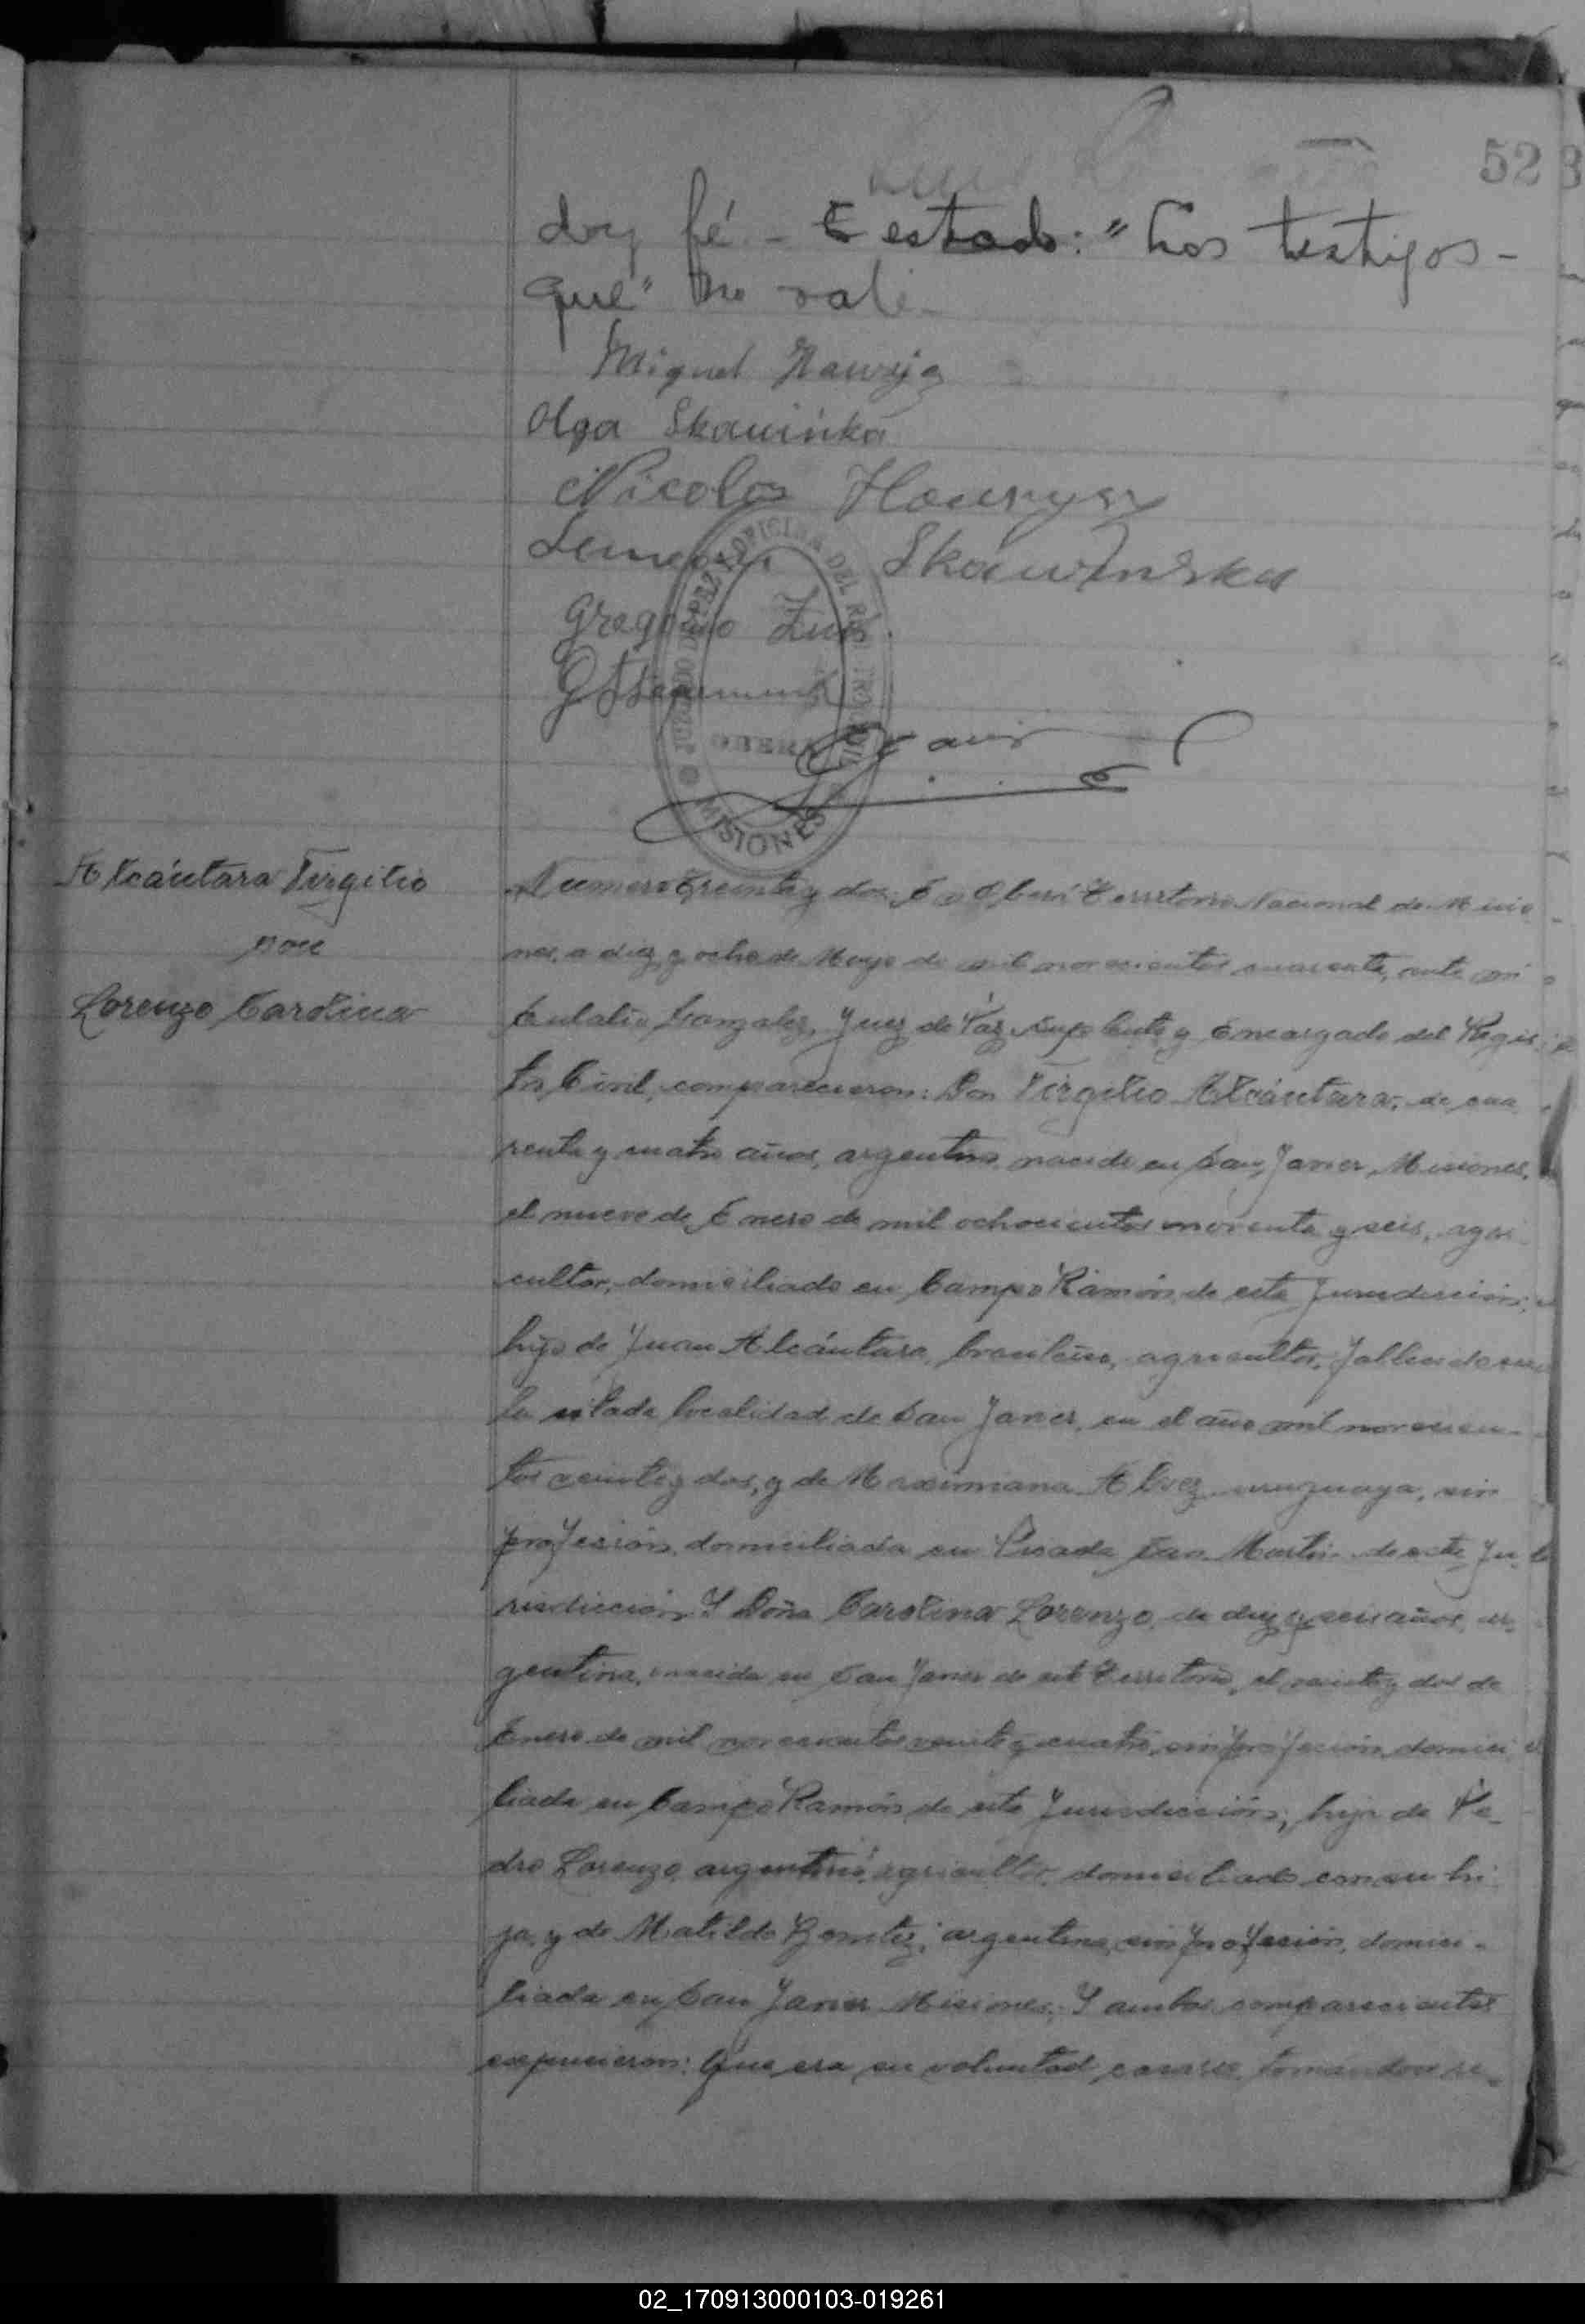 52
doy fé - E estado: "Los testigos -
que" no vale.
Miguel
Olga Skawinka
Nicolas
Skawinska
Gregorio
JUZGADO DE PAZ Y OFICINA DEL REGISTRO CIVIL
OBERA
MISIONES
Alcántara Virgilio
con
Lorenzo Carolina
Numero Treinta y dos. En Oberá Territorio Nacional de Misio
nes, a diez y ocho de Mayo de mil novecientos cuarenta, ante mi
Eulalio Gonzalez, Juez de Paz Suplente y Encargado del Regis
tro Civil, comparecieron: Don Virgilio Alcántara, de cua
renta y cuatro años, argentino, nacido en San Javier, Misiones,
el nueve de Enero de mil ochocientos noventa y seis, agri
cultor, domiciliado en Campo Ramón de esta Jurisdicción;
hijo de Juan Alcántara, brasileño, agricultor, fallecido en
la citada localidad de San Javier, en el año mil novecien-
tos veinte y dos, y de Maximiana Alvez, uruguaya, sin
profesión, domiciliada en Picada San Martin de esta Ju
risdicción. Y Doña Carolina Lorenzo, de diez y seis años, ar
gentina, nacida en San Javier de este Territorio, el veinte y dos de
Enero de mil novecientos veinte y cuatro, sin profesión, domici
liada en Campo Ramón de esta Jurisdicción; hija de Pe-
dro Lorenzo, argentino, agricultor, domiciliado con su hi
ja, y de Matilde Benitez, argentina, sin profesión, domici-
liada en San Javier, Misiones. Y ambos comparecientes
expusieron: Que era su voluntad casarse, tomandose re-
02_170913000103-019261